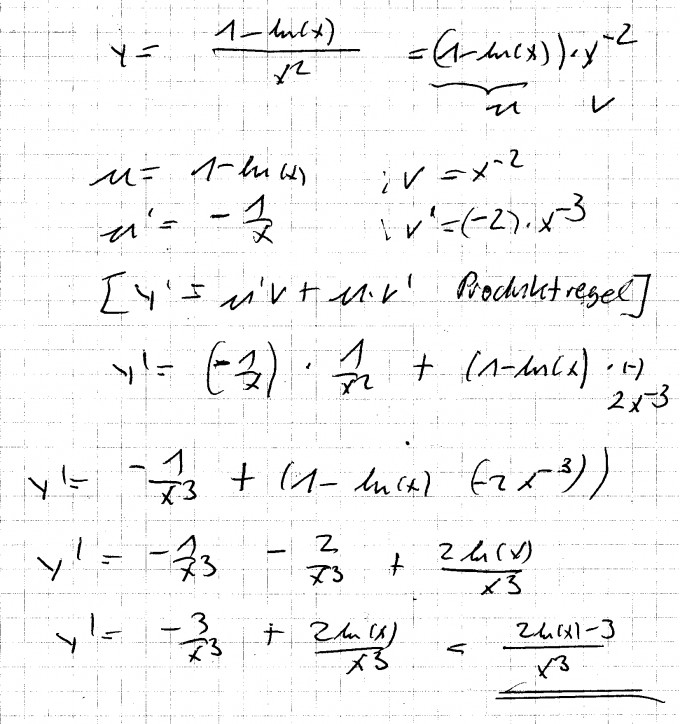 y = \frac{1-ln(x)}{x^2} = (1-ln(x))·x^{-2}
u v
u = 1-ln(x) ; v = x^{-2}
u' = -\frac{1}{x} ; v' = (-2)·x^{-3}
[y' = u'v + u·v' Produktregel]
y' = (-\frac{1}{x}) · \frac{1}{x^2} + (1-ln(x) · (-)
2x^{-3}
y' = -\frac{1}{x^3} + (1-ln(x) (-2x^{-3}))
y' = -\frac{1}{x^3} - \frac{2}{x^3} + \frac{2ln(x)}{x^3}
y' = -\frac{3}{x^3} + \frac{2ln(x)}{x^3} = \frac{2ln(x)-3}{x^3}